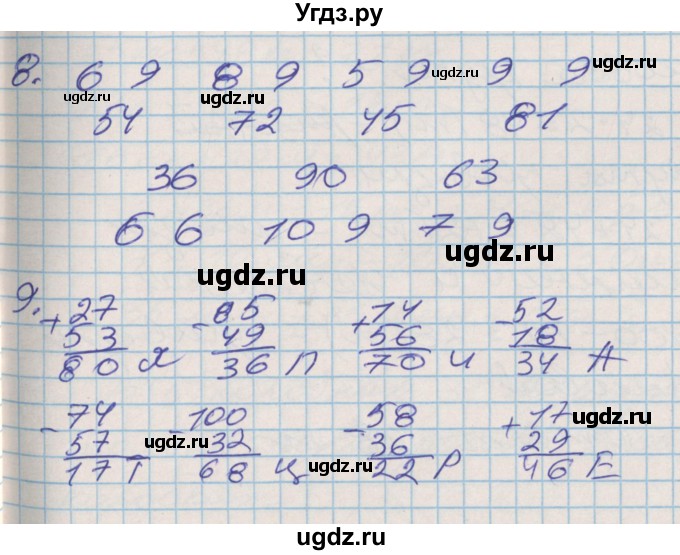 Угдз.ру
8. 6 9 8 9 5 9 9 9
ugdz.ru ugdz.ru ugdz.ru ugdz.ru
54 72 45 81
36 90 63
6 6 10 9 7 9
ugdz.ru ugdz.ru
9. +27 -85 +14 -52
53 49 56 18
80 Я 36 П 70 И 34 А
ugdz.ru ugdz.ru
-74 -100 -58 +17
57 32 36 29
17 Т 68 Ц 22 Р 46 Е
ugdz.ru ugdz.ru ugdz.ru
ugdz.ru